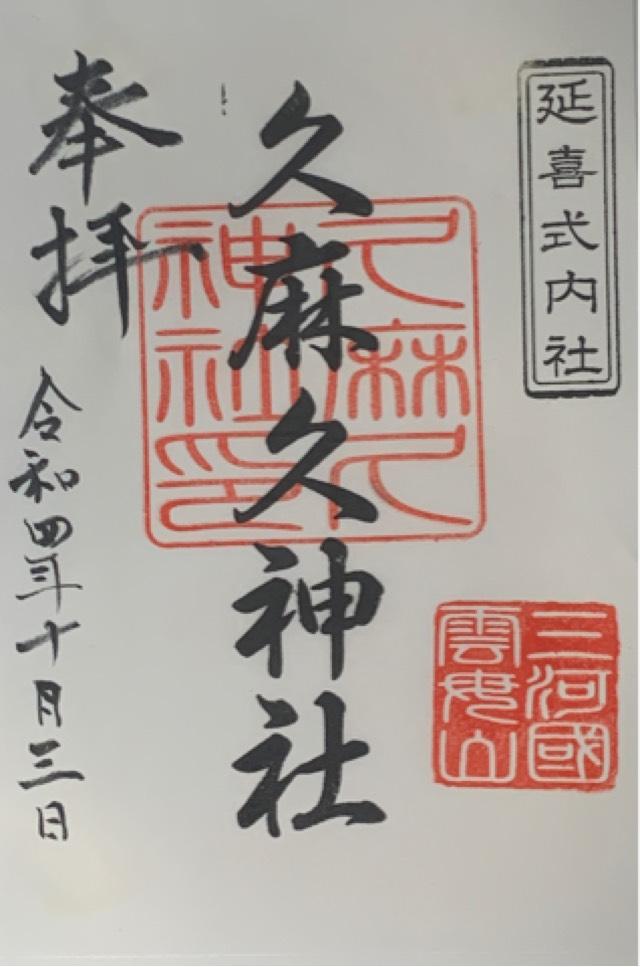 延喜式内社
三河國
雲母山
久麻久神社
久麻久
神社印
奉拝
令和四年十月三日